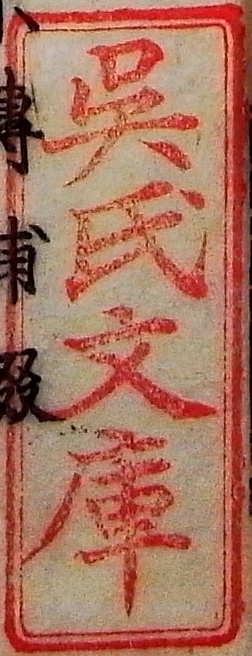 吳氏文庫